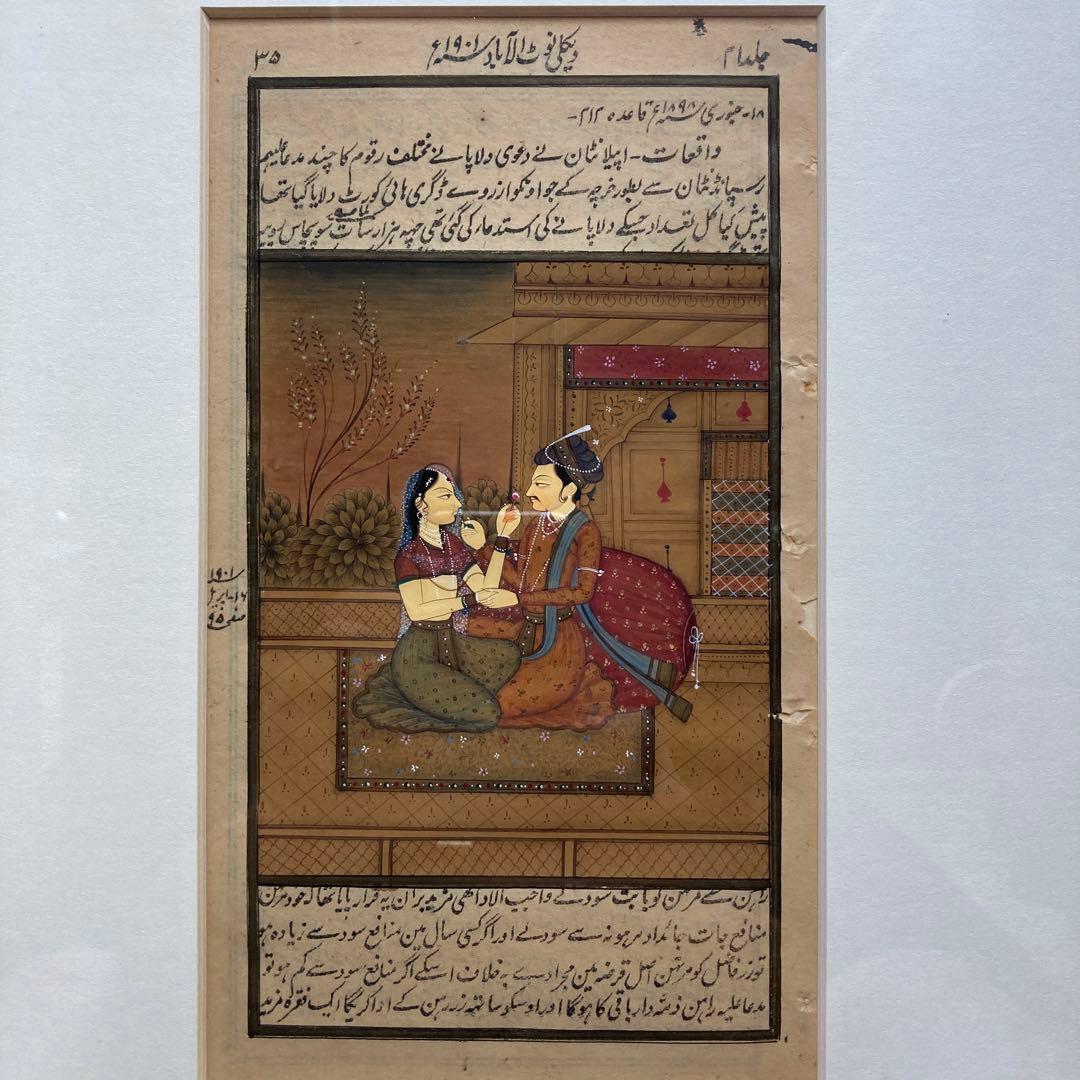 جلد ۲۱ ویکلی نوٹ الہ آباد سنہ ۱۹۰۱ء ۳۵
۱۸- جنوری سنہ ۱۸۹۸ء قاعدہ ۲۱۲-
واقعات - اپیلانٹان نے دعوی دلاپانے مختلف رقوم کا چند مدعاعلیہم
رسپانڈنٹان سے بطور خرچہ کے جو اونکو ازروے ڈگری ہائی کورٹ دلایا گیا تھا
پیش کیا کل تعداد جسکے دلاپانے کی استدعاء کی گئی تھی چھہ ہزار سات سو پچاس روپیہ
سنہ ۱۹۰۱
۱۶ اپریل
صفحہ ۹۵
راہن سے مرتہن کو بابت سود کے واجب الادا تھی مزید بران یہ قرار پایا تھا کہ جو مرتہن
منافع جات جائداد مرہونہ سے سود لے اور اگر کسی سال مین منافع سود سے زیادہ ہو
تو زر فاضل کو مرتہن اصل قرضہ مین مجرا دے بہ خلاف اسکے اگر منافع سود سے کم ہو تو
مدعاعلیہ راہن ذمہ دار باقی کا ہوگا اور اوسکو ساتھ زر رہن کے ادا کریگا ایک فقرہ مزید